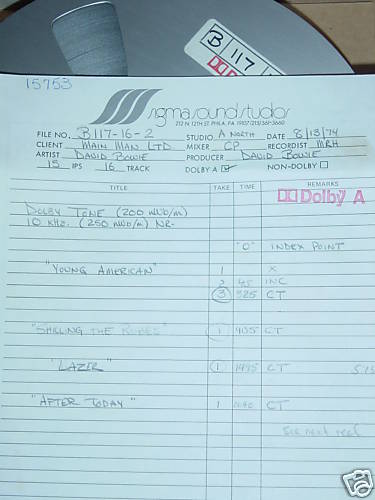 B 117
DO
15753
sigma sound studios
212 N. 12TH ST. PHILA. PA 19107 (215) 561-3660
FILE NO. B117-16-2 STUDIO A NORTH DATE 8/13/74
CLIENT MAIN MAN LTD MIXER CP RECORDIST MRH
ARTIST DAVID BOWIE PRODUCER DAVID BOWIE
15 IPS 16 TRACK DOLBY A NON-DOLBY
TITLE TAKE TIME REMARKS
Dolby A
DOLBY TONE (200 nWb/m)
10 KHz. (250 nWb/m) NR-
"0" INDEX POINT
"YOUNG AMERICAN" 1 X
2 45 INC
3 325 CT
"SHILLING THE RUBES" 1 405 CT
"LAZER" 1 CT
"AFTER TODAY" 1 CT
See next reel